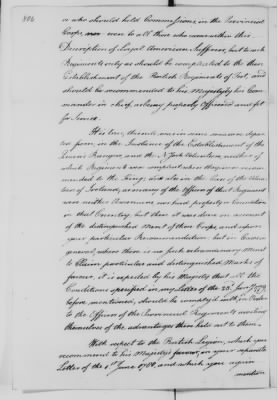 806
or who should hold Commissions in the Provincial
Corps, nor even to all those who came within this
Description of Loyal American Sufferers, but to such
Regiments only as should be completed to the then
Establishment of the British Regiments of Foot, and
should be recommended to His Majesty by his Com-
mander in chief, as being properly Officered and fit
for Service.
It is true, there were in some measure depar-
ted from, in the Instance of the Establishment of the
Queens Rangers, and the N. York Volunteers, neither of
which Regiments was compleat when they were recom-
mended to the King; as also in the Case of the Volun-
teers of Ireland, as many of the Officers of that Regiment
were neither Americans nor had property or Connection
in that Country, but then it was done on account
of the distinguished Merit of those Corps, and upon
your particular Recommendation but in Cases
general, where there is no such extraordinary Merit
to Claim particular and distinguished Marks of
favour, it is expected by His Majesty that all the
Conditions specified in my Letter of the 23d. Jany. 1779,
before mentioned, should be comply'd with, in Order
to the Officers of the Provincial Regiments availing
themselves of the advantages then held out to them.
With respect to the British Legion, which you
recommend to his Majesty's favour, in your separate
Letter of the 6th. June 1781, and which you again
mention